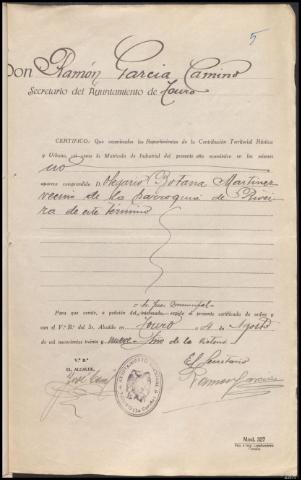 5
Don Ramón Garcia Camino
Secretario del Ayuntamiento de Touro
CERTIFICO: Que examinados los Repartimientos de la Contribución Territorial Rústica
y Urbana, así como la Matrícula de Industrial del presente año económico en los mismos
no
aparece comprendido D. Rotana Martinez
vecino de la parroquia de
ra de este término
Sr. Juez Municipal
Para que conste, a petición del interesado expido el presente certificado de orden y
con el V.º B.º del Sr. Alcalde en Touro a 4 de Agosto
de mil novecientos treinta y nueve - Año de la Victoria
V.º B.º
EL ALCALDE,
El Secretario
José
Ramon Garcia
Mod. 327